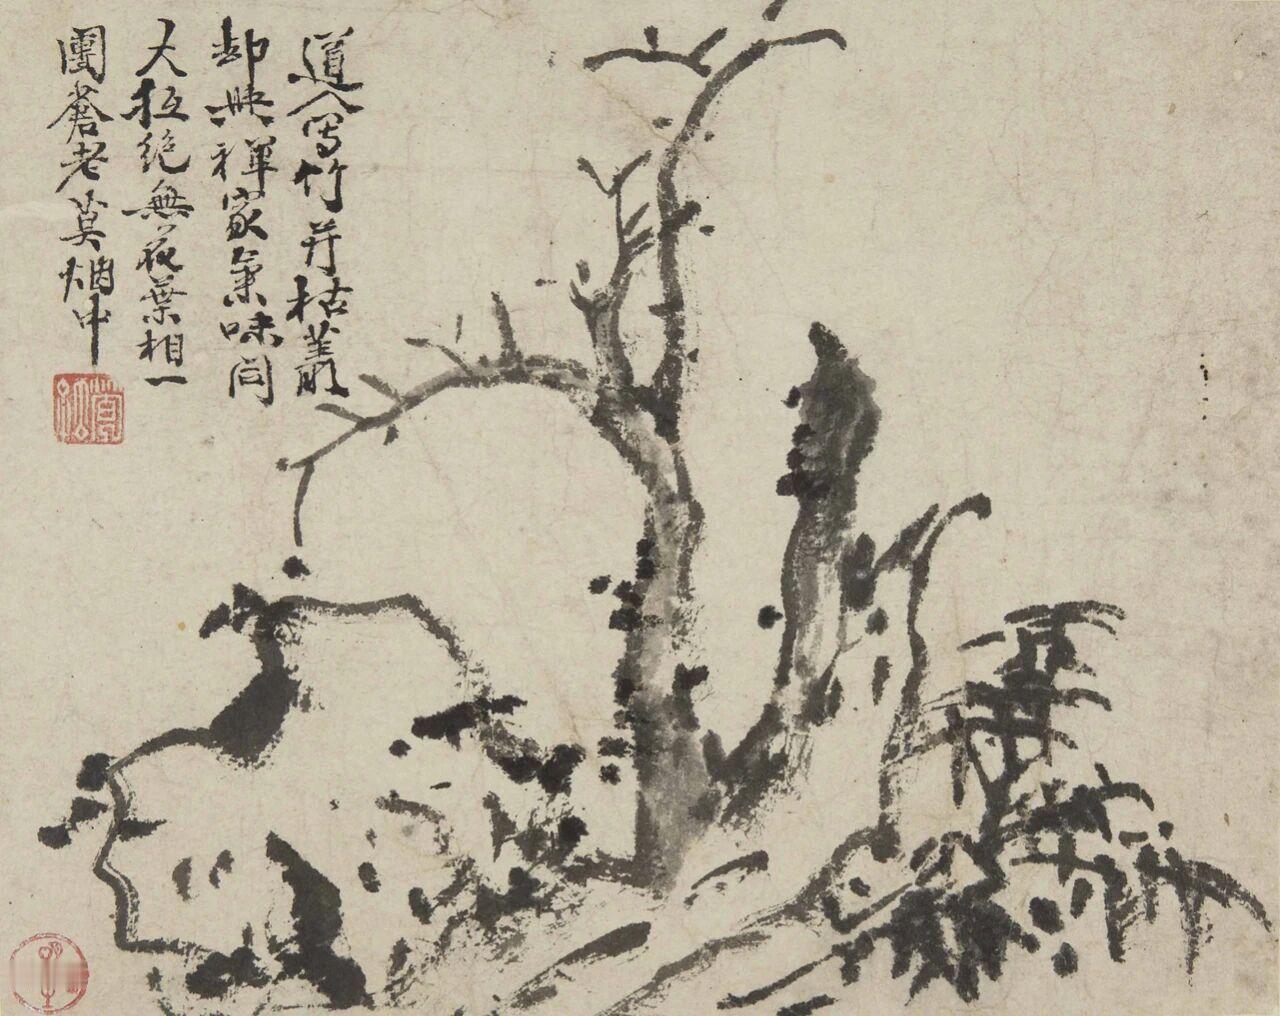 道人寫竹并枯叢
却與禪家氣味同
大抵絕無花葉相一
團蒼老莫烟中